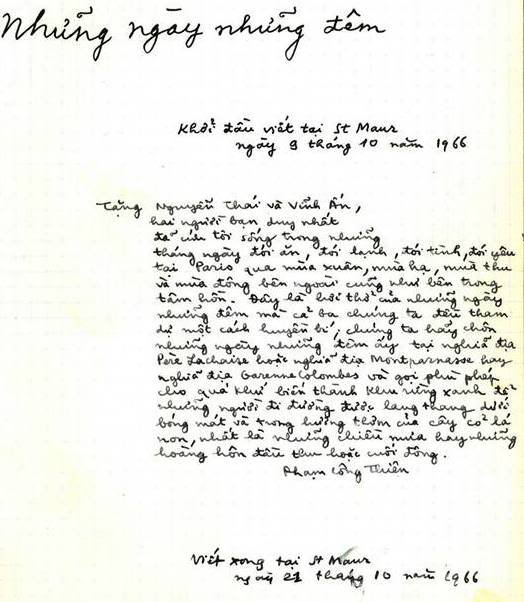 Những ngày những đêm
Khởi đầu viết tại St Maur
ngày 9 tháng 10 năm 1966
Tặng Nguyễn Thái và Vĩnh Ấn,
hai người bạn duy nhất
đã cứu tôi sống trong những
tháng ngày đói ăn, đói lạnh, đói tình, đói yêu
tại Paris qua mùa xuân, mùa hạ, mùa thu
và mùa đông bên ngoài cũng như bên trong
tâm hồn. Đây là hơi thở của những ngày
những đêm mà cả ba chúng ta đều tham
dự một cách huyền bí, chúng ta hãy chôn
những ngày những đêm ấy tại nghĩa địa
Père Lachaise hoặc nghĩa địa Montparnasse hay
nghĩa địa Garenne Colombes và gọi phù phép
cho quá khứ biến thành khu rừng xanh để
những người đi đường được lang thang dưới
bóng mát và trong hương thơm của cây cỏ lá
non, nhất là những chiều mưa hay những
hoàng hôn đầu thu hoặc cuối đông.
Phạm Công Thiện
Viết xong tại St Maur
ngày 21 tháng 10 năm 1966